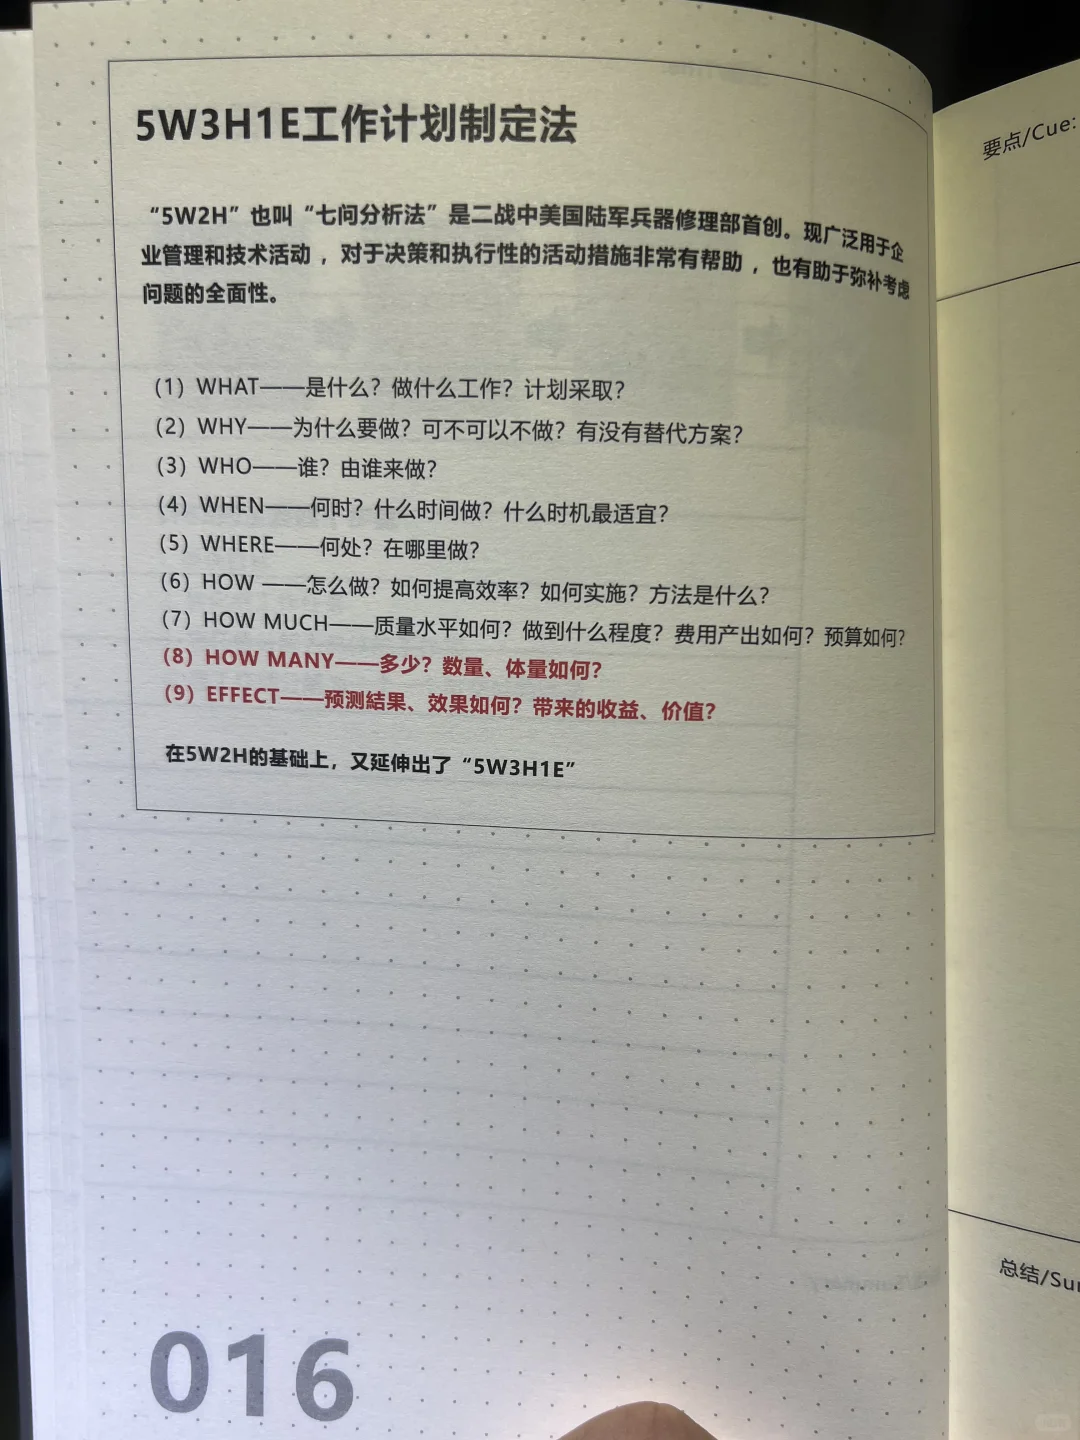 5W3H1E工作计划制定法
“5W2H”也叫“七问分析法”是二战中美国陆军兵器修理部首创。现广泛用于企
业管理和技术活动，对于决策和执行性的活动措施非常有帮助，也有助于弥补考虑
问题的全面性。
（1）WHAT——是什么？做什么工作？计划采取？
（2）WHY——为什么要做？可不可以不做？有没有替代方案？
（3）WHO——谁？由谁来做？
（4）WHEN——何时？什么时间做？什么时机最适宜？
（5）WHERE——何处？在哪里做？
（6）HOW ——怎么做？如何提高效率？如何实施？方法是什么？
（7）HOW MUCH——质量水平如何？做到什么程度？费用产出如何？预算如何？
（8）HOW MANY——多少？数量、体量如何？
（9）EFFECT——预测結果、效果如何？带来的收益、价值？
在5W2H的基础上，又延伸出了“5W3H1E”
016
要点/Cue:
总结/Su